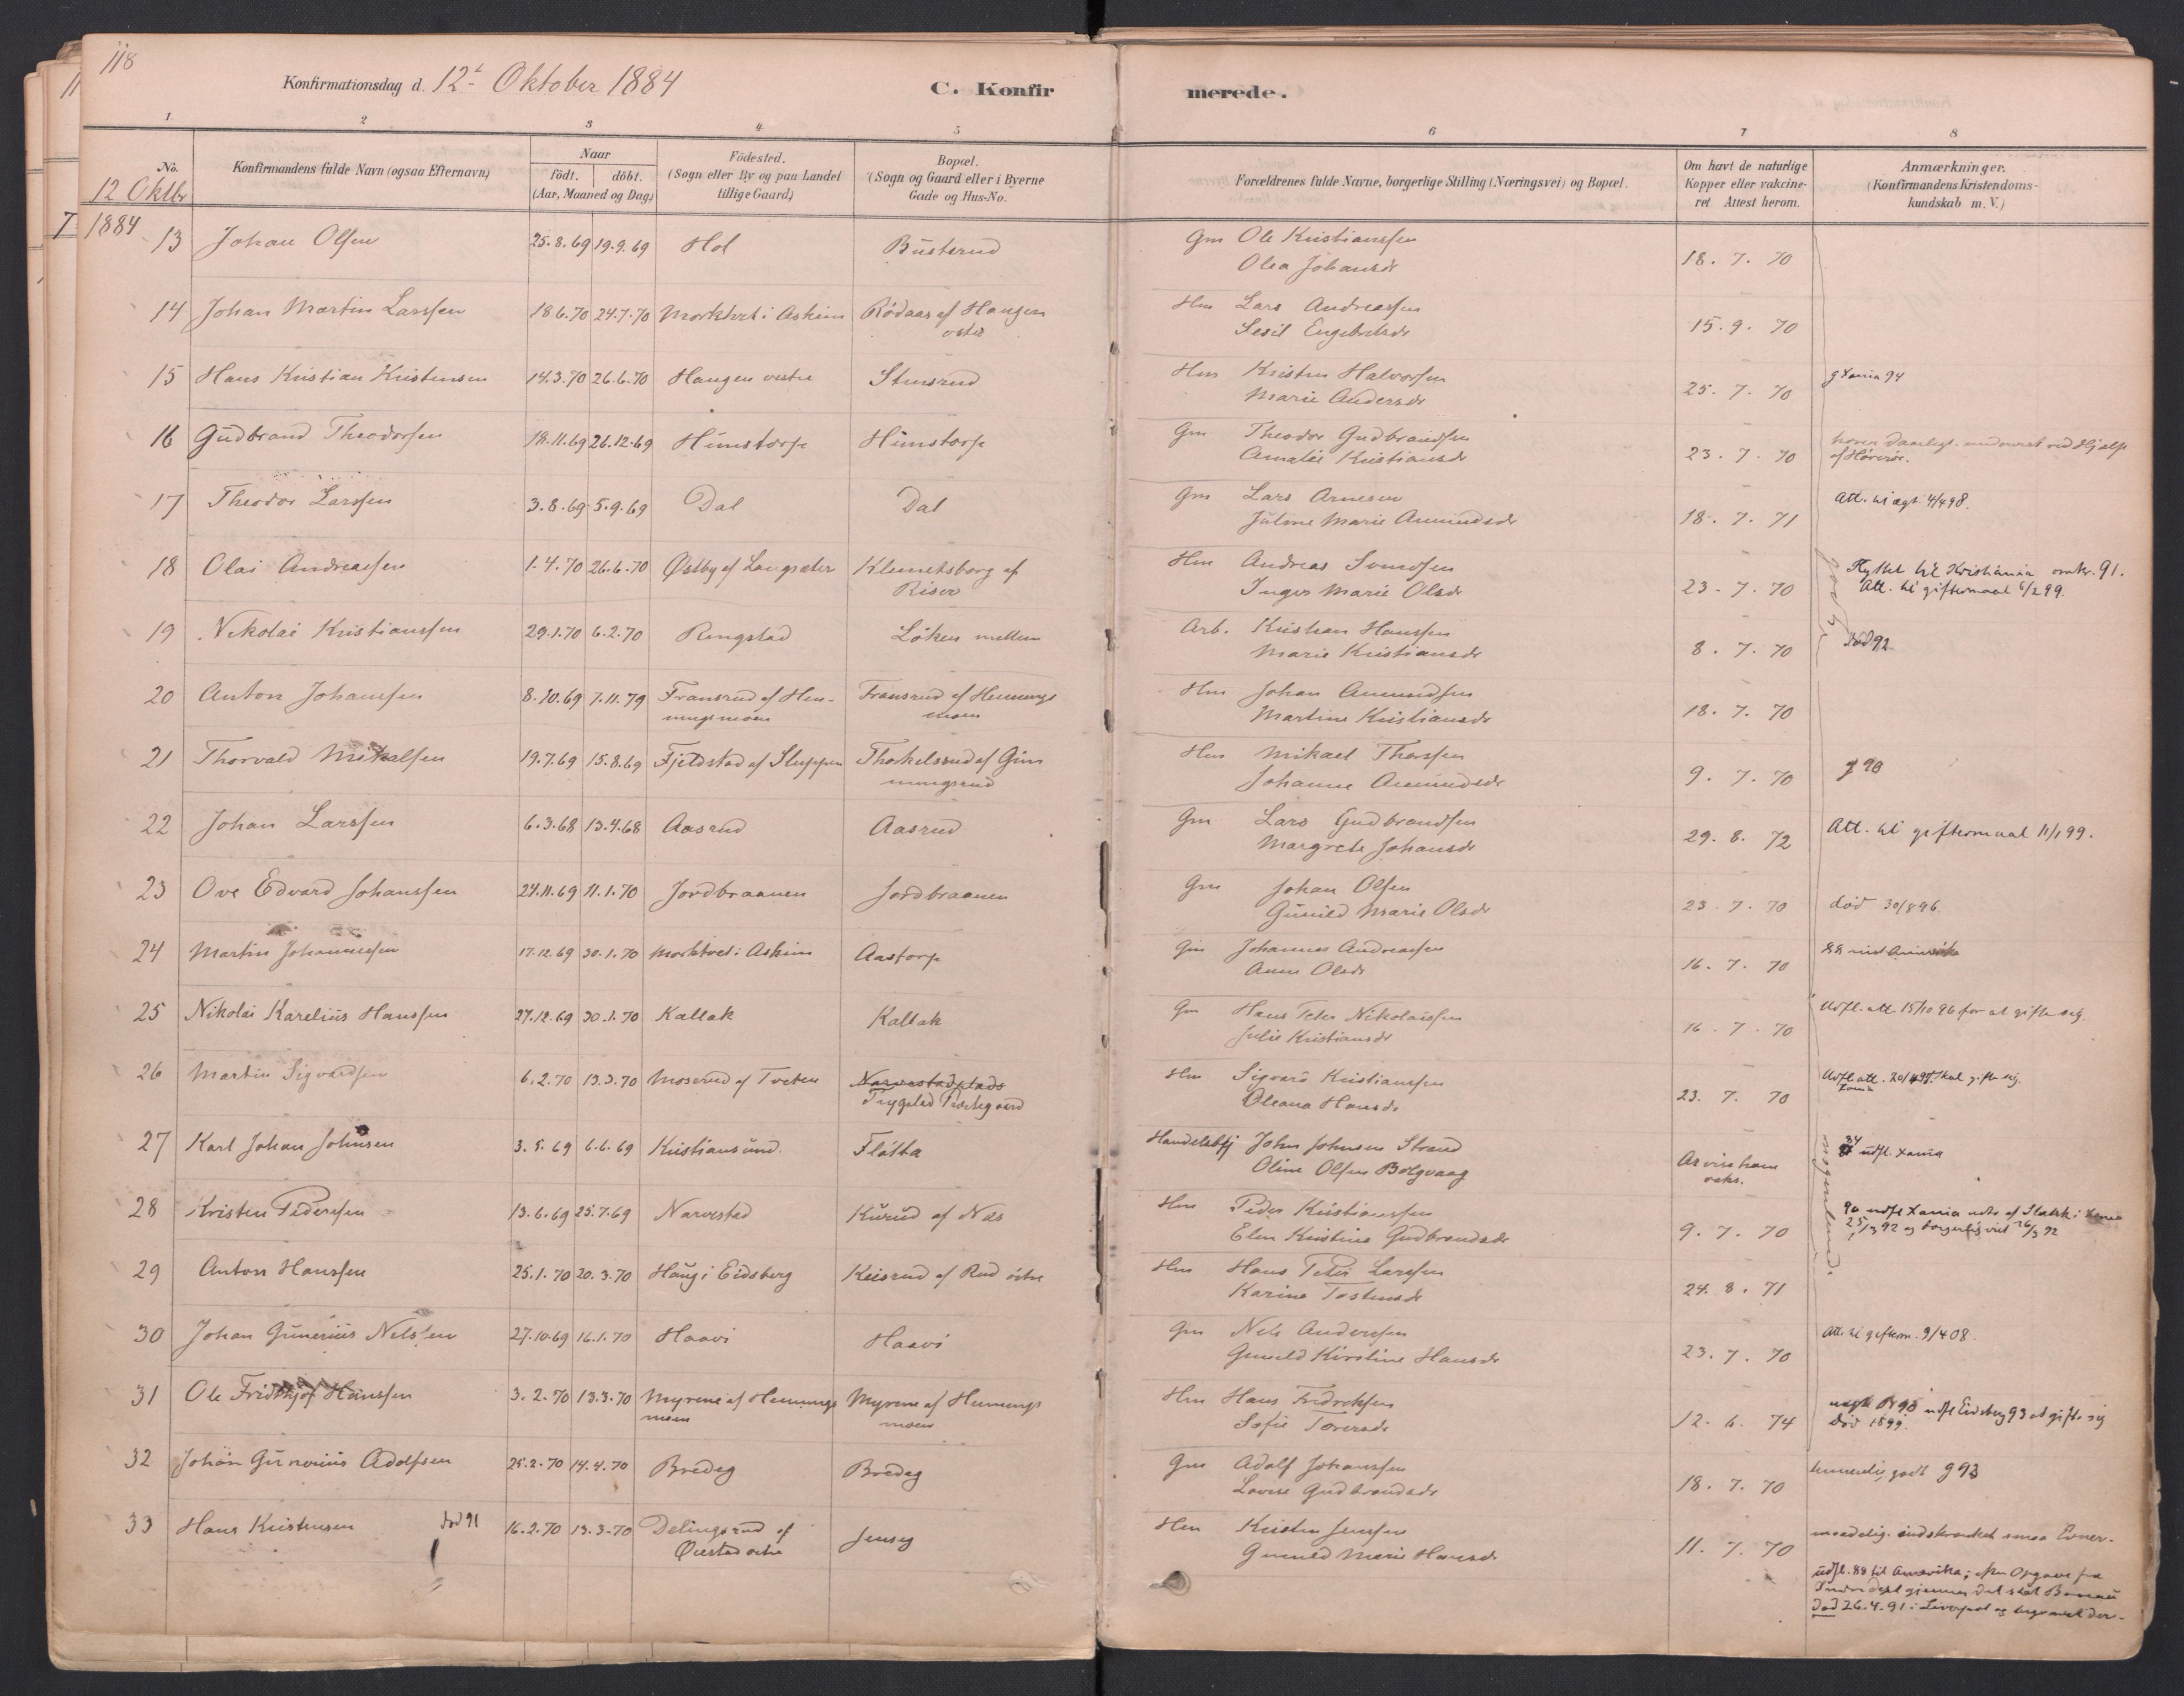 118
Konfirmationsdag d. 12te Oktober 1884
C. Konfirmerede.
1 2 3 4 5 6 7 8
No.
Konfirmandens fulde Navn (ogsaa Efternavn)
Naar
födt. döbt.
(Aar, Maaned og Dag)
Födested.
(Sogn eller By og paa Landet
tillige Gaard)
Bopæl.
(Sogn og Gaard eller i Byerne
Gade og Hus-No.
Forældrenes fulde Navne, borgerlige Stilling (Næringsvei) og Bopæl.
Om havt de naturlige
Kopper eller vakcine-
ret Attest herom.
Anmærkninger.
(Konfirmandens Kristendoms-
kundskab m. V.)
12 Oktbr
1884
13 Johan Olsen 25.8.69 19.9.69 Hol Busterud Gm Ole Kristianssen
Olea Johansdr 18. 7. 70
14 Johan Martin Larssen 18 6.70 24.7.70 Morktvet i Askim Rödaas af Haugen
østre Hm Lars Andreassen
Sesil Engebretsdr 15. 9. 70
15 Hans Kristian Kristensen 14.3.70 26.6.70 Haugen vestre Stensrud Hm Kristen Halvorsen
Marie Andersdr 25. 7. 70 g Xania 94
16 Gudbrand Theodorsen 18.11.69 26.12.69 Himstorp Himstorp Gm Theodor Gudbrandsen
Amalie Kristiansdr 23. 7. 70 hører daarligt. undervist ved Hjælp
af Hørerør.
17 Theodor Larssen 3.8.69 5.9.69 Dal Dal Gm Lars Arnesen
Juline Marie Amundsdr 18. 7. 71 Att. til ægt. 4/4 98.
18 Olai Andreassen 1.4.70 26.6.70 Østby af Langsæter Klemetsborg af
Riser Hm Andreas Svendsen
Inger Marie Olsdr 23. 7. 70 Flyttet til Kristiania omkr. 91.
Att. til giftermaal 6/2 99.
19 Nikolai Kristianssen 29.1.70 6.2.70 Ringstad Löken mellem Arb. Kristian Hanssen
Marie Kristiansdr 8. 7. 70 Död 92
20 Anton Johanssen 8.10.69 7.11.79 Fransrud af Hen-
ningsmoen Fransrud af Hennings
moen Hm Johan Amundsen
Martine Kristiansdr 18. 7. 70
21 Thorvald Mikalsen 19.7.69 15.8.69 Fjeldstad af Sluppen Thorkelsrud af Gim
mingsrud Hm Mikael Thorssen
Johanne Amundsdr 9. 7. 70 g 90
22 Johan Larssen 6.3.68 13.4.68 Aasrud Aasrud Gm Lars Gudbrandsen
Margrete Johansdr 29. 8. 72 Att. til giftermaal 11/1 99.
23 Ove Edvard Johanssen 24.11.69 11.1.70 Jordbraanen Jordbraanen Gm Johan Olsen
Gunild Marie Olsdr 23. 7. 70 död 30/8 96.
24 Martin Johannessen 17.12.69 30.1.70 Morktvet i Askim Aastorp Gm Johannes Andreassen
Anne Olsdr 16. 7. 70 88 ind Amerika
25 Nikolai Karelius Hanssen 27.12.69 30.1.70 Kallak Kallak Gm Hans Peter Nikolaissen
Julie Kristiansdr 16. 7. 70 Udfl. att. 15/10 96 for at gifte sig.
26 Martin Sigvardsen 6.2.70 13.3.70 Moserud af Tveten Narvestadplads
Trygstad Prestegaard Hm Sigvard Kristianssen
Oleana Hansdr 23. 7. 70 Udfl. att. 20/4 97. Skal gifte sig.
Xania
27 Karl Johan Johnsen 3.5.69 6.6.69 Kristiansund Flatta Handelsbtj John Johnsen Strand
Oline Olsen Bolgvaag 84 udfl. Xania
28 Kristen Pederssen 13.6.69 25.7.69 Narvestad Kurud af Næs Hm Peder Kristianssen
Elen Kristine Gudbrandsdr 9. 7. 70 90 udfl Xania udtr. af Statsk. i Xania
25/3 92 og borgerlig viet 26/3 92
29 Anton Hanssen 25.1.70 20.3.70 Haug i Eidsberg Keisrud af Rud östre Hm Hans Peter Larssen
Karine Tostensdr 24. 8. 71
30 Johan Gunerius Nelssen 27.10.69 16.1.70 Haavi Haavi Gm Nels Anderssen
Gunild Kirstine Hansdr 23. 7. 70 Att. til gifterm. 9/4 08.
31 Ole Fridthjof Hanssen 3.2.70 13.3.70 Myrene af Hennings
moen Myrene af Hennings
moen Hm Hans Fredriksen
Sofie Torersdr 12. 6. 74 udfl Eidsberg 93 at gifte sig
Död 1899.
32 Johan Gunerius Adolfsen 25.2.70 14.4.70 Bredeg Bredeg Gm Adolf Johanssen
Lovise Gudbrandsdr 18. 7. 70 temmelig godt g 93
33 Hans Kristensen död 91 16.2.70 13.3.70 Delingsrud af
Ørestad østre Jenseg Hm Kristen Jenssen
Gunild Marie Hansdr 11. 7. 70 maadelig. indskrænket smaa Evner.
udfl. 88 til Amerika; efter Opgave fra
Död 26.4.91 i Liverpool og begravet der.